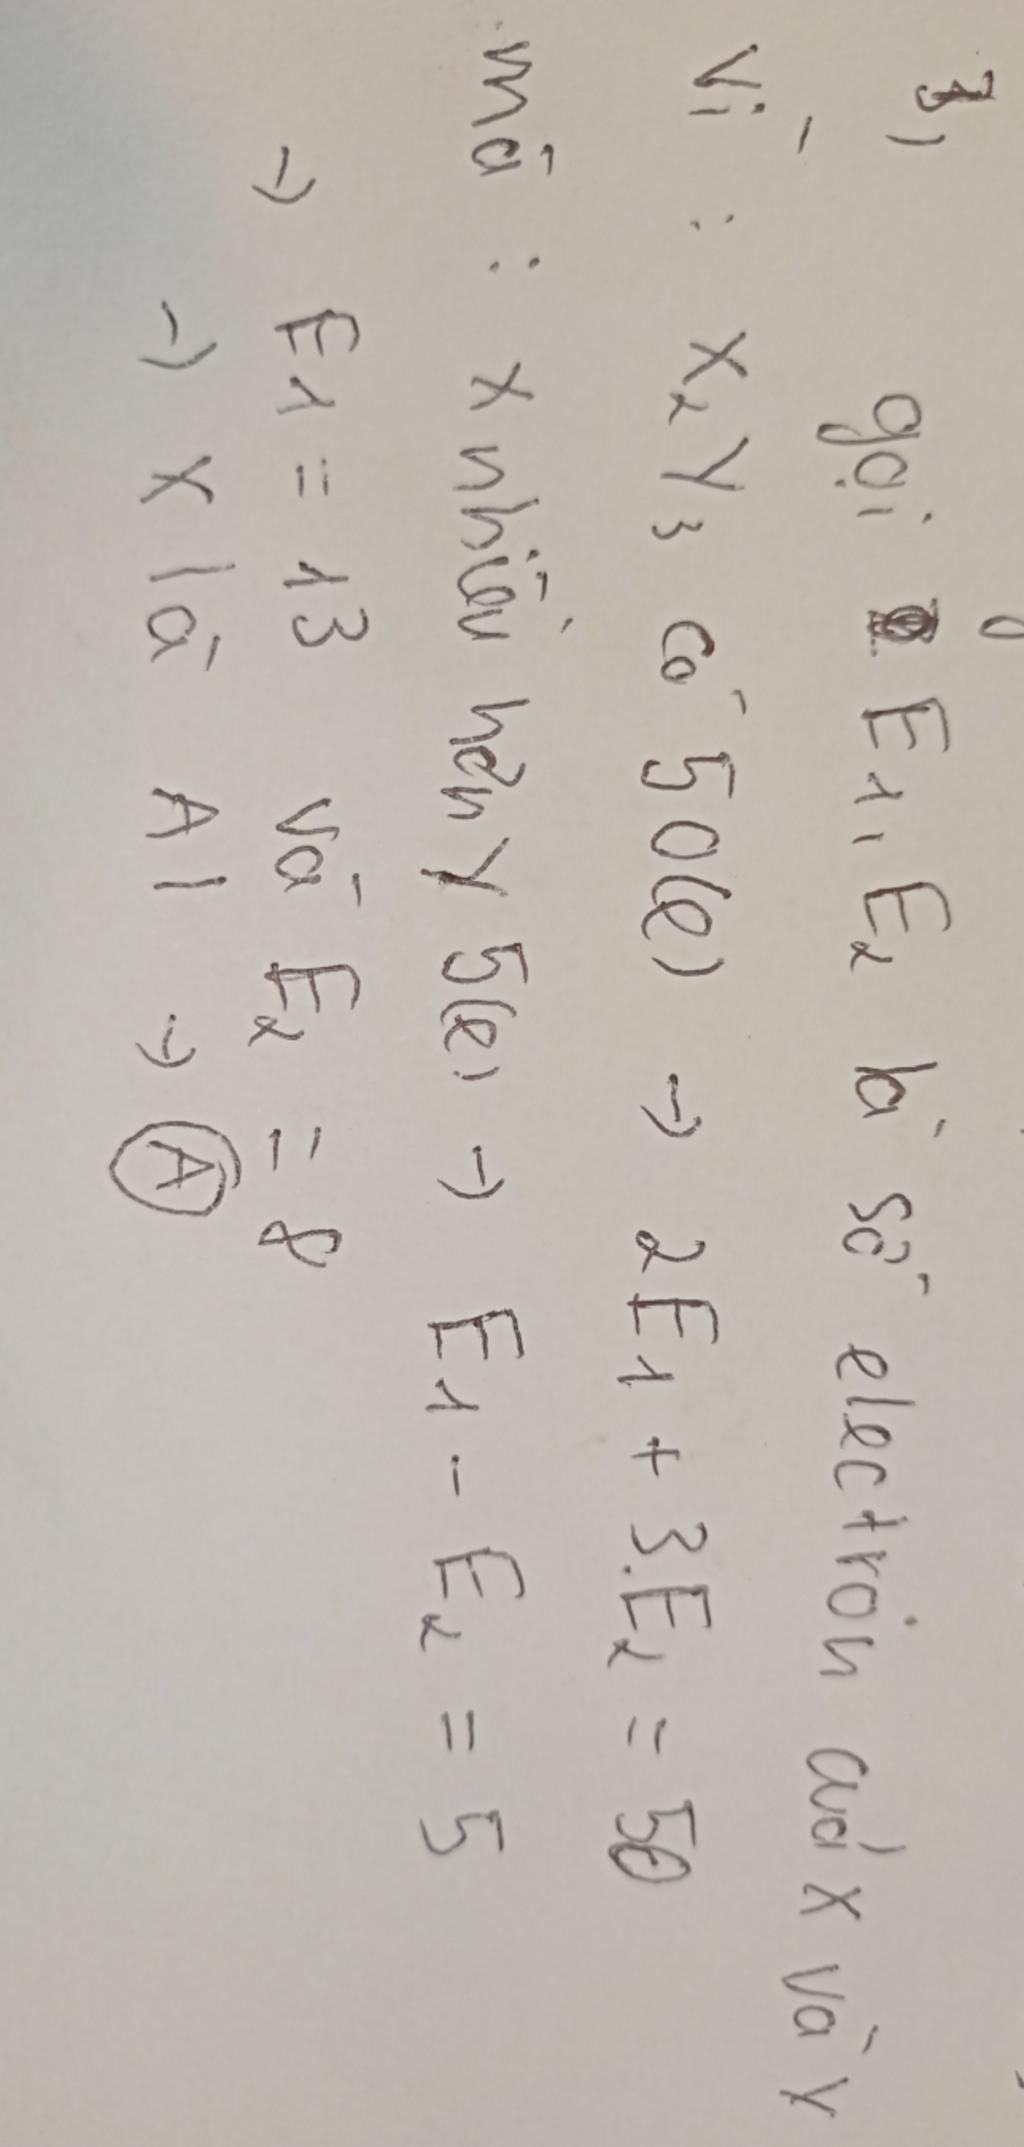 7)
gọi E1, E2 là số electron của X và Y
Vì : X2Y3 có 50(e) → 2E1 + 3.E2 = 50
mà : X nhiều hơn Y 5(e) → E1 - E2 = 5
→ E1 = 13 và E2 = 8
→ X là Al → A